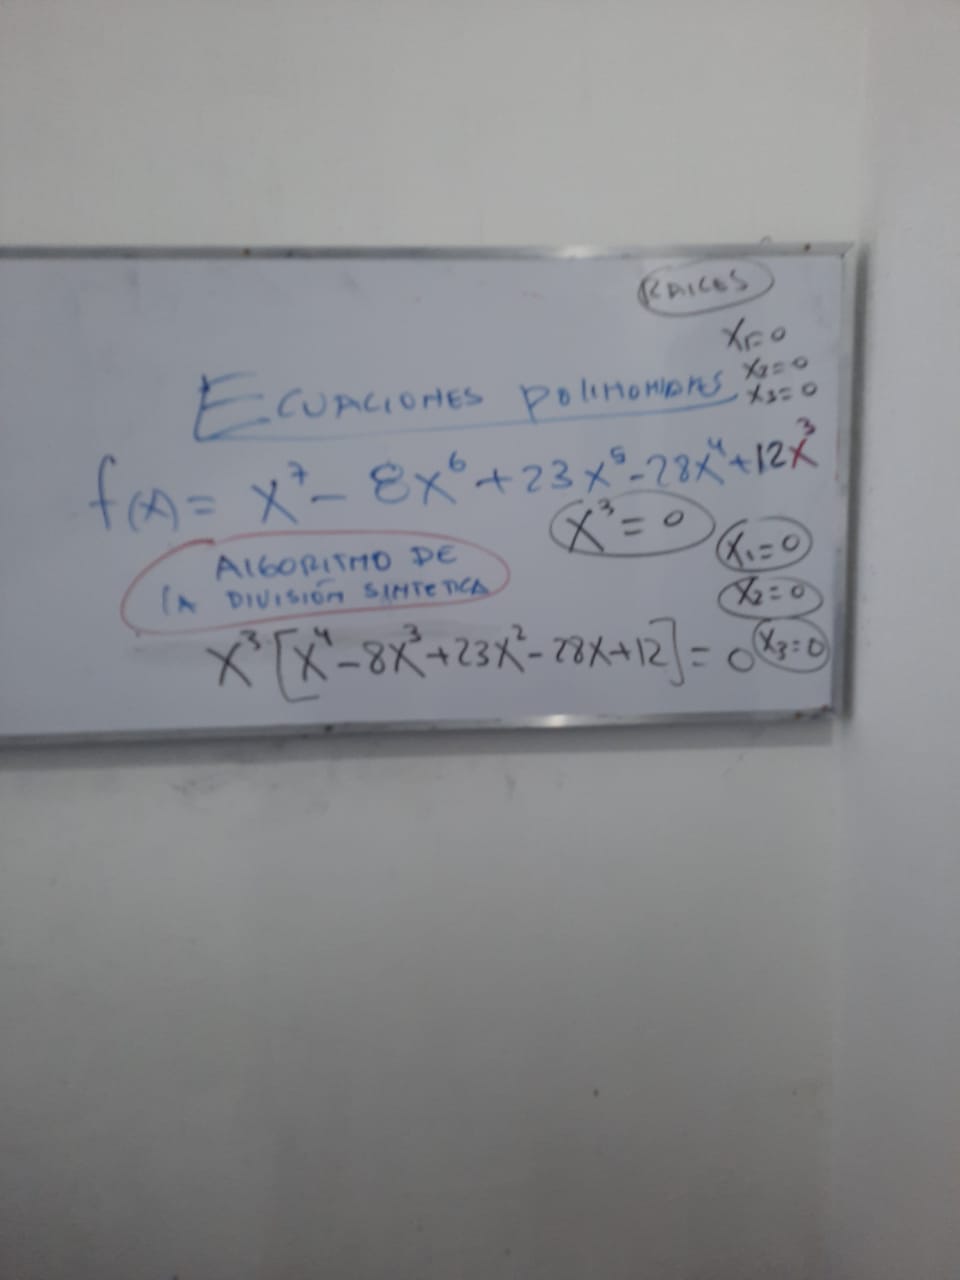 RAICES
X₁=0
X₂=0
X₃=0
ECUACIONES POLINOMIALES
f(x) = x⁷ - 8x⁶ + 23x⁵ - 28x⁴ + 12x³
x³ = 0
X₁=0
X₂=0
X₃=0
ALGORITMO DE
LA DIVISIÓN SINTETICA
x³[x⁴-8x³+23x²-28x+12] = 0